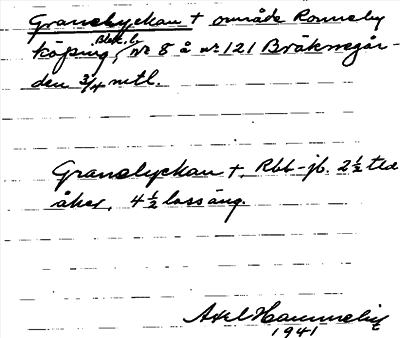 Granelyckan + område Ronneby
köping, Blek. l. nr 8 å nr 121 Bräknegår-
den 3/4 mtl.
Granelyckan +. Rbb-jb. 2½ tld
åker, 4½ lass äng.
Axel Hammelin
1941